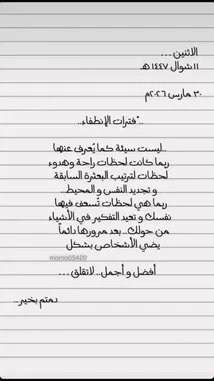 الاثنين ...
١١ شوال ١٤٤٧ هـ
٣٠ مارس ٢٠٢٦م
.."فترات الإنطفاء..
..ليست سيئة كما يُعرف عنها
ربما كانت لحظات راحة وهدوء
لحظات لترتيب البعثرة السابقة
و تجديد النفس و المحيط..
ربما هي لحظات تُسعف فيها
نفسك و تعيد التفكير في الأشياء
من حولك.. بعد مرورها دائماً
يضي الأشخاص بشكل
momo05420
أفضل و أجمل.. لاتقلق ...
دمتم بخير..